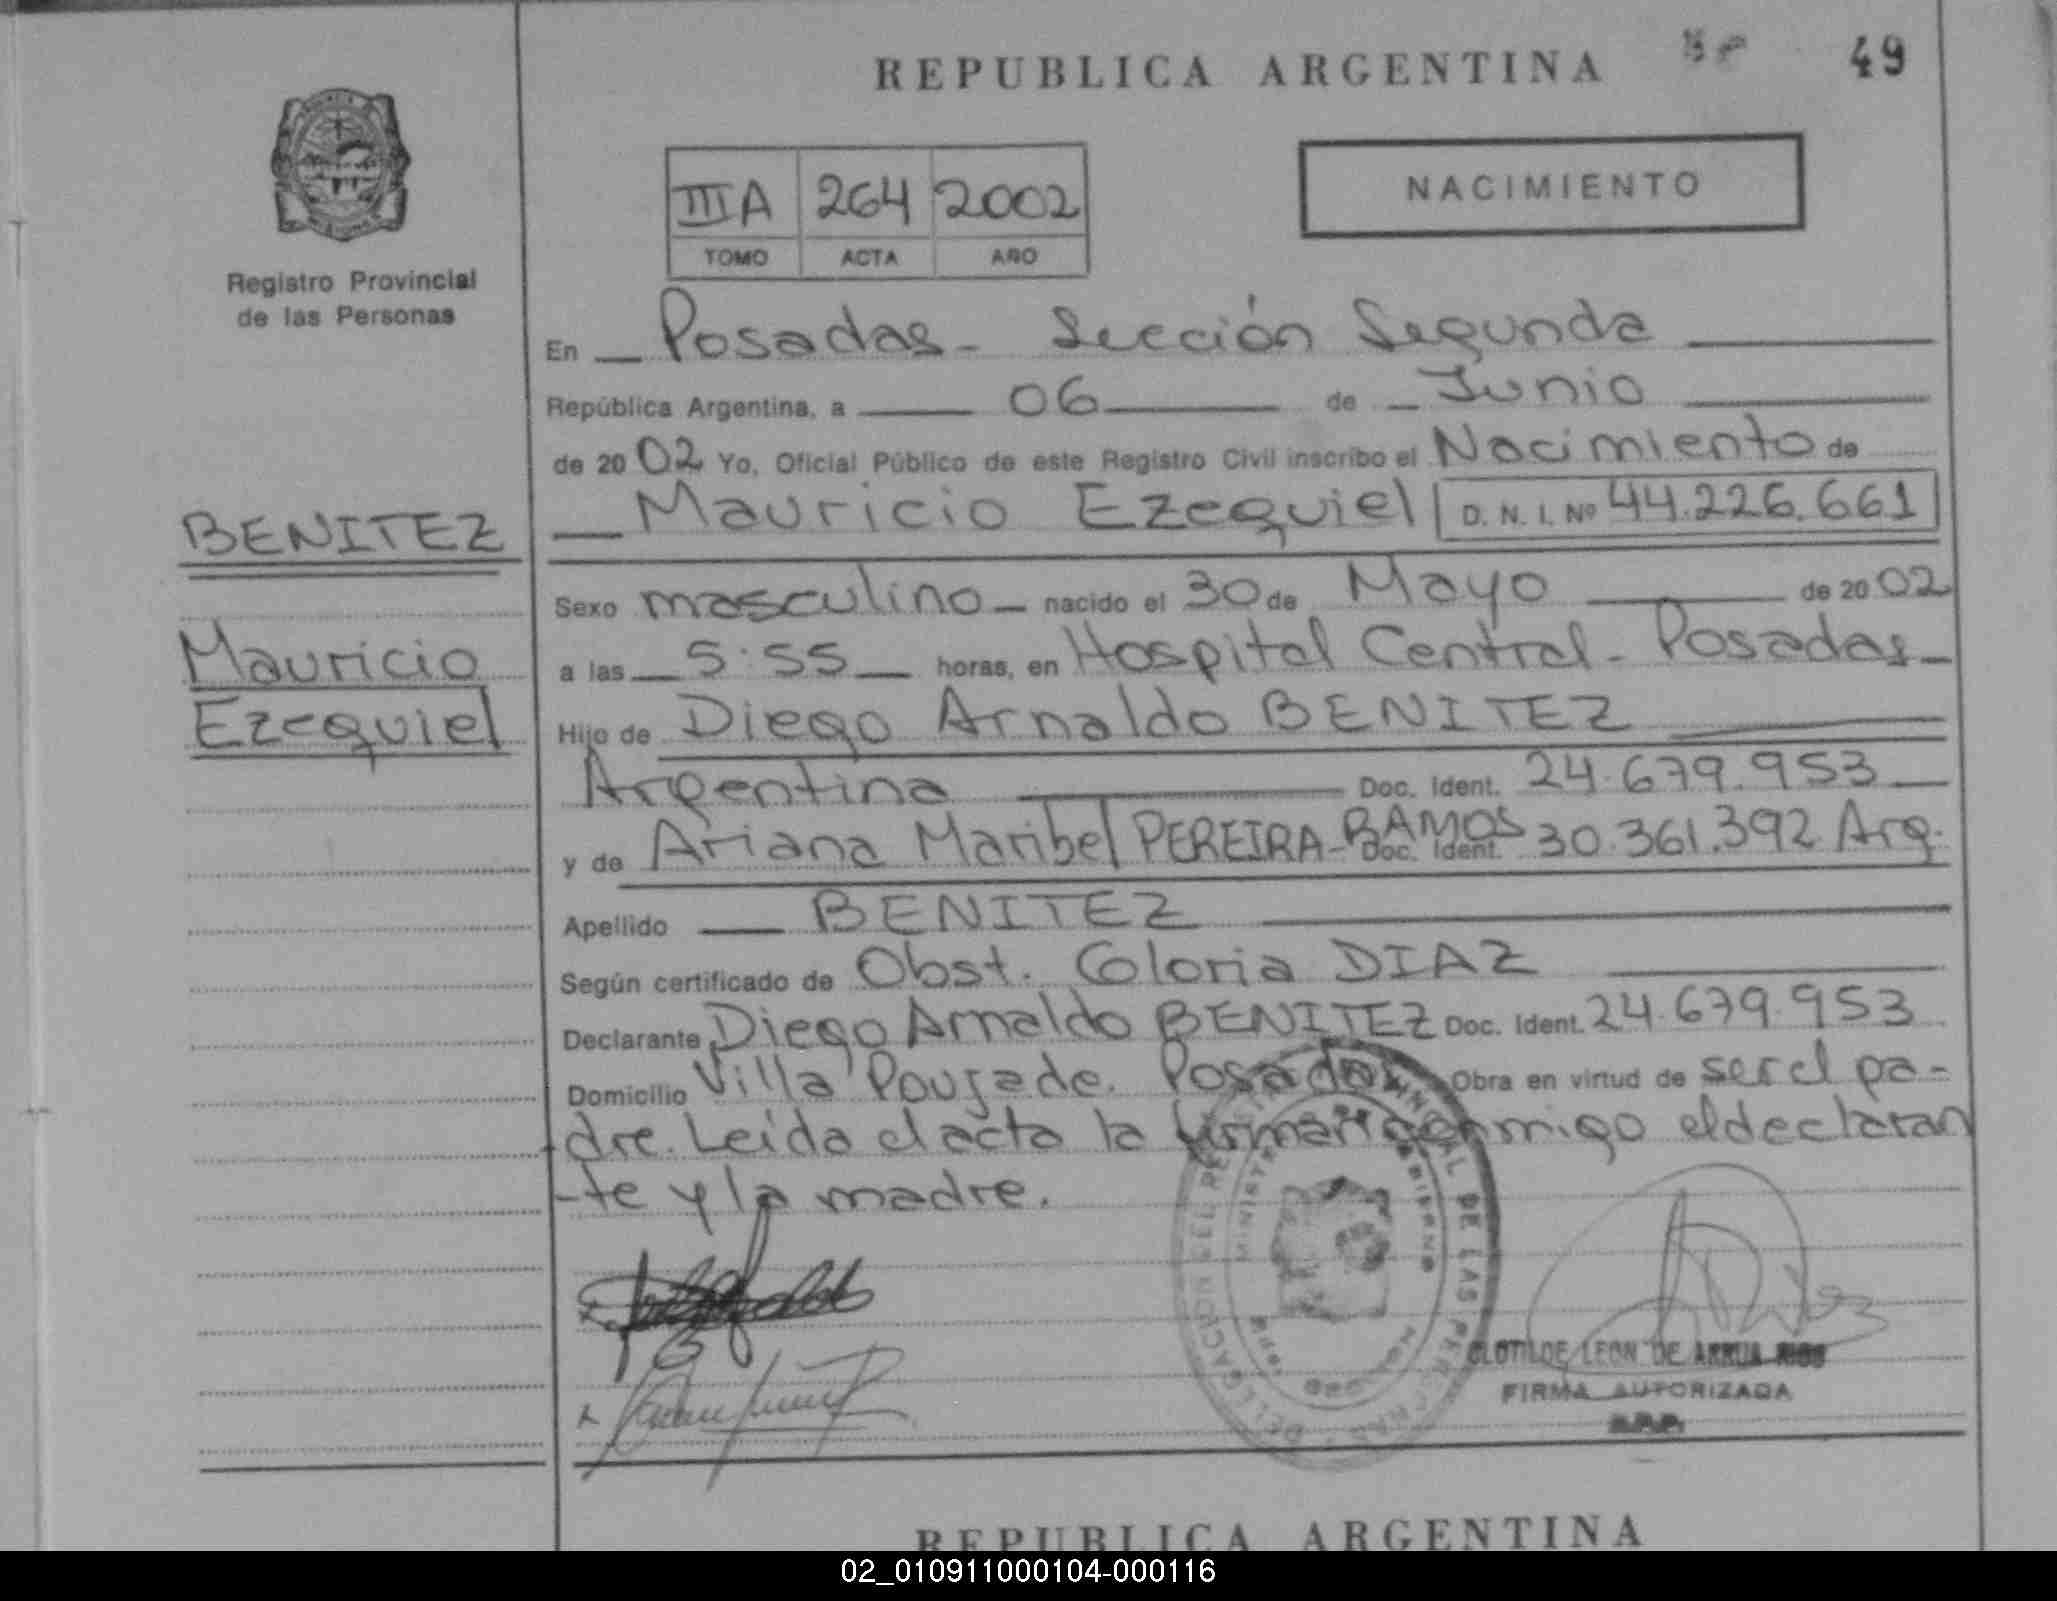 REPUBLICA ARGENTINA
49
Registro Provincial
de las Personas
IIIA 264 2002
TOMO ACTA AÑO
NACIMIENTO
En Posadas - Sección Segunda
República Argentina, a 06 de Junio
de 2002 Yo, Oficial Público de este Registro Civil inscribo el Nacimiento de
Mauricio Ezequiel D. N. I. Nº 44.226.661
BENITEZ
Mauricio
Ezequiel
Sexo masculino nacido el 30 de Mayo de 2002
a las 5:55 horas, en Hospital Central - Posadas
Hijo de Diego Arnaldo BENITEZ
Argentina Doc. Ident. 24.679.953
y de Ariana Maribel PEREIRA-RAMOS Doc. Ident. 30.361.392 Arg.
Apellido BENITEZ
Según certificado de Obst. Gloria DIAZ
Declarante Diego Arnaldo BENITEZ Doc. Ident. 24.679.953
Domicilio Villa Poujade. Posadas Obra en virtud de ser el pa-
dre. Leída el acta la firman conmigo el declaran
-te y la madre.
CLOTILDE LEON DE ARRUA RIOS
FIRMA AUTORIZADA
R.P.P.
REPUBLICA ARGENTINA
02_010911000104-000116